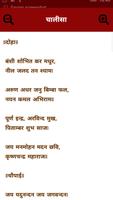 चालीसा
॥दोहा॥
बंशी शोभित कर मधुर,
नील जलद तन श्याम।
अरुण अधर जनु बिम्बा फल,
नयन कमल अभिराम॥
पूर्ण इन्द्र, अरविन्द मुख,
पिताम्बर शुभ साज।
जय मनमोहन मदन छवि,
कृष्णचन्द्र महाराज॥
॥चौपाई॥
जय यदुनन्दन जय जगवन्दन।